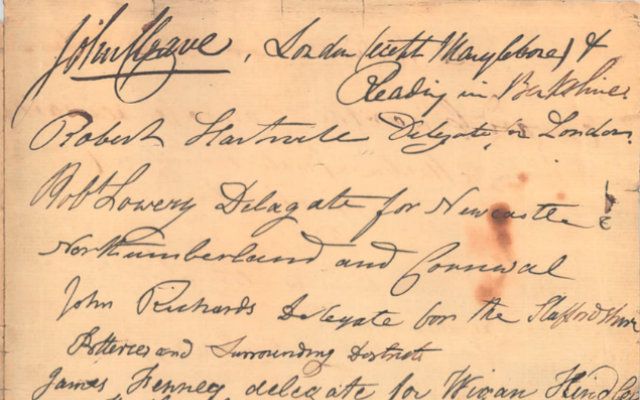 John Cleave, London (with Marylebone) &
Reading in Berkshire
Robert Hartwell Delegate, for London
Robt Lowery Delagate for Newcastle &
Northumberland and Cornwal
John Richards Delegate for the Staffordshire
Potteries and Surrounding Districts
James Fenney delegate for Wigan Hindley